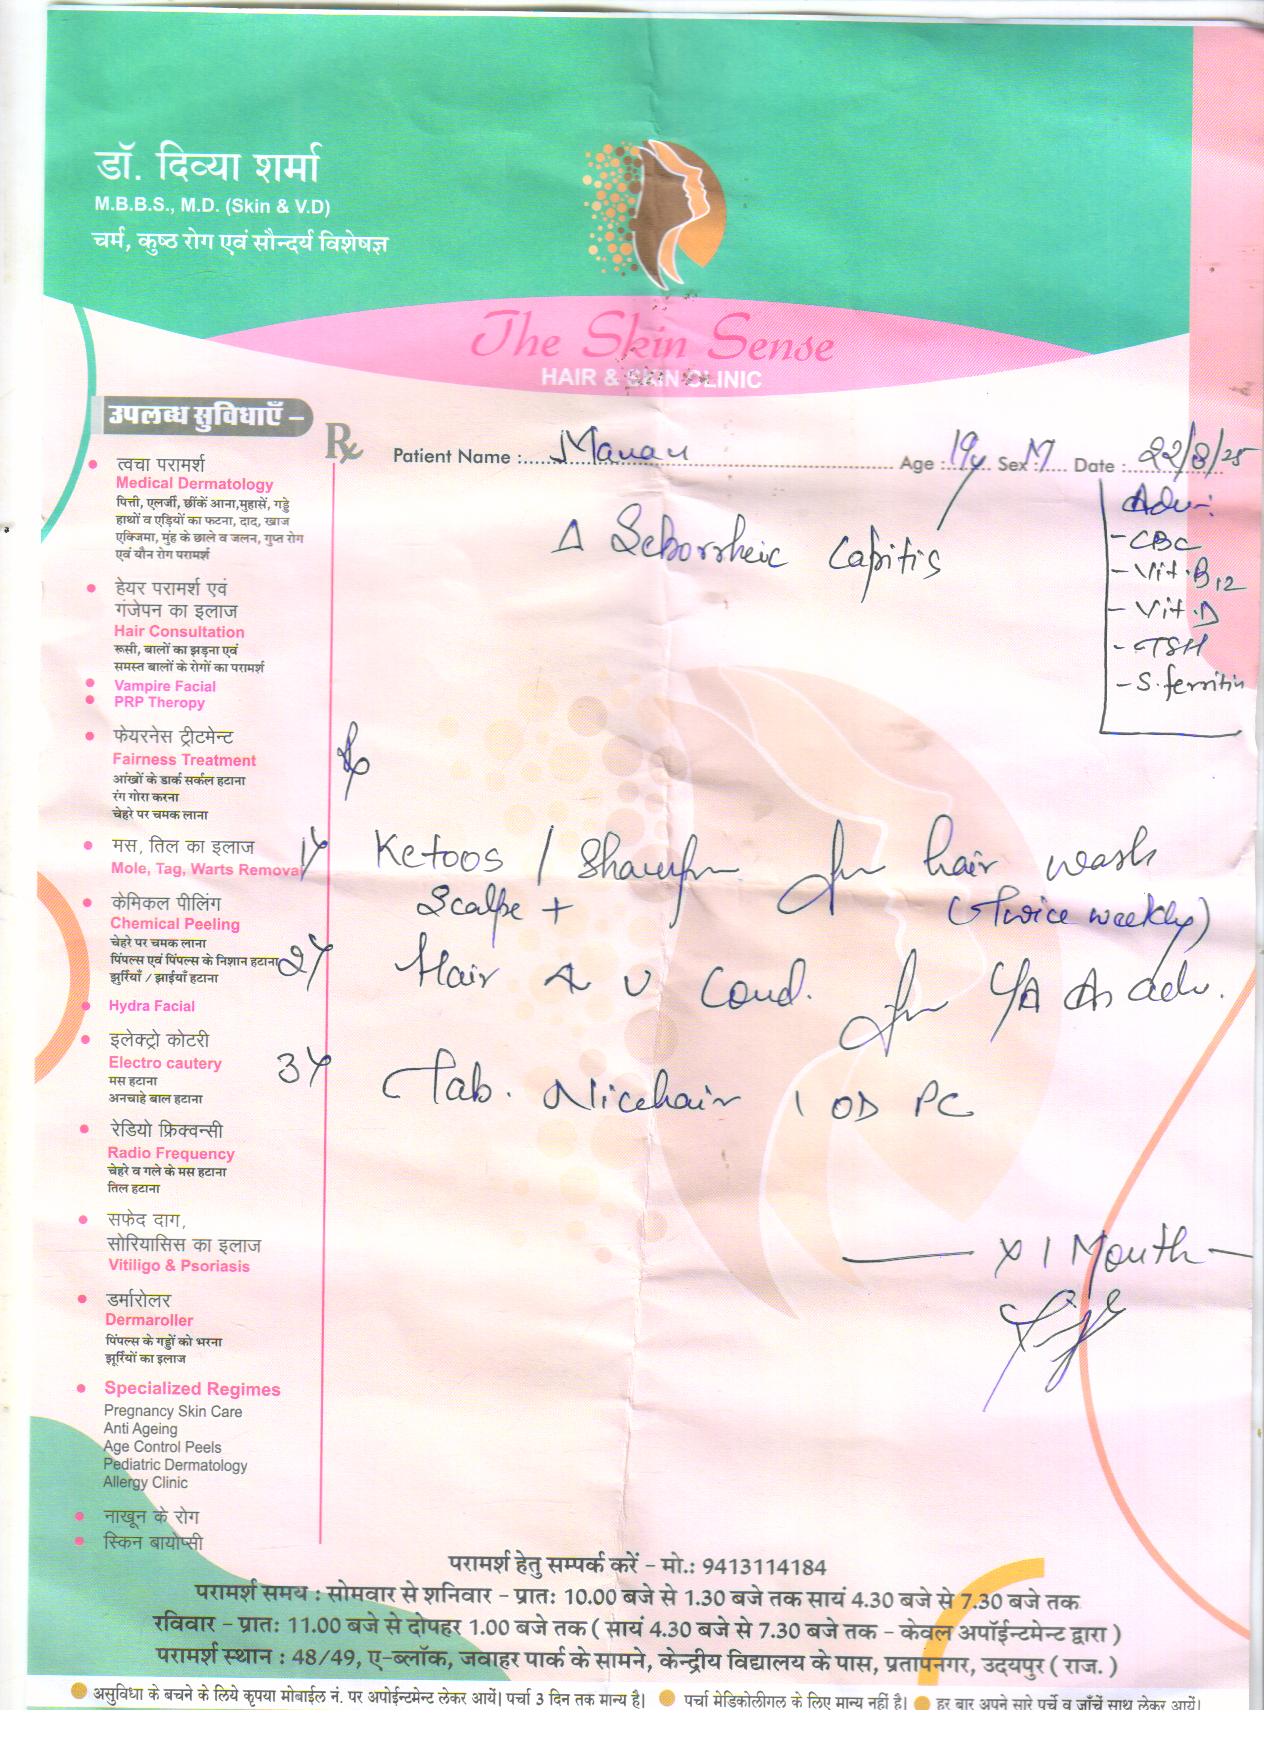 डॉ. दिव्या शर्मा
M.B.B.S., M.D. (Skin & V.D)
चर्म, कुष्ठ रोग एवं सौन्दर्य विशेषज्ञ
The Skin Sense
HAIR & SKIN CLINIC
उपलब्ध सुविधाएँ –
Rx
Patient Name : Manan Age : 19y Sex M Date : 22/8/25
Adv:
- CBC
- Vit. B12
- Vit. D
- TSH
- S. ferritin
Δ Seborrheic Capitis
त्वचा परामर्श
Medical Dermatology
पित्ती, एलर्जी, छींकें आना, मुहासें, गड्डे
हाथों व एड़ियों का फटना, दाद, खाज
एक्जिमा, मुंह के छाले व जलन, गुप्त रोग
एवं यौन रोग परामर्श
हेयर परामर्श एवं
गंजेपन का इलाज
Hair Consultation
रूसी, बालों का झड़ना एवं
समस्त बालों के रोगों का परामर्श
Vampire Facial
PRP Theropy
फेयरनेस ट्रीटमेन्ट
Fairness Treatment
आंखों के डार्क सर्कल हटाना
रंग गोरा करना
चेहरे पर चमक लाना
मस, तिल का इलाज
Mole, Tag, Warts Removal
केमिकल पीलिंग
Chemical Peeling
चेहरे पर चमक लाना
पिंपल्स एवं पिंपल्स के निशान हटाना
झुर्रियाँ / झाईयाँ हटाना
Hydra Facial
इलेक्ट्रो कोटरी
Electro cautery
मस हटाना
अनचाहे बाल हटाना
रेडियो फ्रिक्वन्सी
Radio Frequency
चेहरे व गले के मस हटाना
तिल हटाना
सफेद दाग,
सोरियासिस का इलाज
Vitiligo & Psoriasis
डर्मारोलर
Dermaroller
पिंपल्स के गड्डों को भरना
झुर्रियों का इलाज
Specialized Regimes
Pregnancy Skin Care
Anti Ageing
Age Control Peels
Pediatric Dermatology
Allergy Clinic
नाखून के रोग
स्किन बायोप्सी
Rx
1) Ketoos / for hair wash
Scalpe + (twice weekly)
2) Hair 4 U Cond. for L/A As adv.
3) Tab. Nicehair 1 OD PC
x 1 Month
परामर्श हेतु सम्पर्क करें – मो.: 9413114184
परामर्श समय : सोमवार से शनिवार – प्रातः 10.00 बजे से 1.30 बजे तक सायं 4.30 बजे से 7.30 बजे तक
रविवार – प्रातः 11.00 बजे से दोपहर 1.00 बजे तक ( सायं 4.30 बजे से 7.30 बजे तक – केवल अपॉईन्टमेन्ट द्वारा )
परामर्श स्थान : 48/49, ए-ब्लॉक, जवाहर पार्क के सामने, केन्द्रीय विद्यालय के पास, प्रतापनगर, उदयपुर ( राज. )
असुविधा के बचने के लिये कृपया मोबाईल नं. पर अपोईन्टमेन्ट लेकर आयें। पर्चा 3 दिन तक मान्य है। पर्चा मेडिकोलीगल के लिए मान्य नहीं है। हर बार अपने सारे पर्चे व जाँचें साथ लेकर आयें।